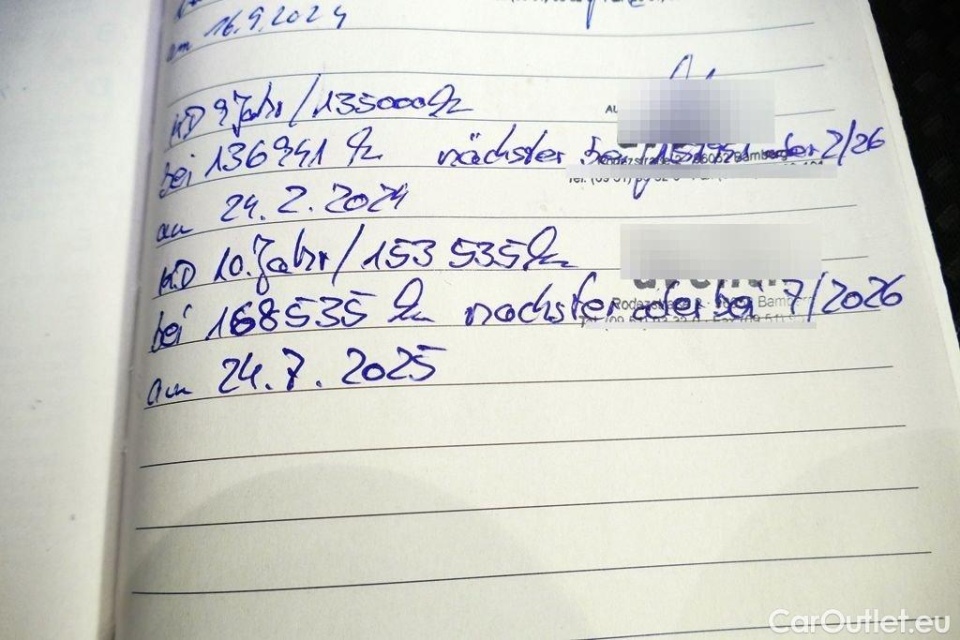 am 16.9.2024
KD 9 Jahr / 135000 km
bei 136941 km nächster bei 151941 oder 2/26
am 24.2.2024
KD 10. Jahr / 153535 km
Rodezstraße
bei 168535 km nächster oder bei 7/2026
am 24.7.2025
CarOutlet.eu